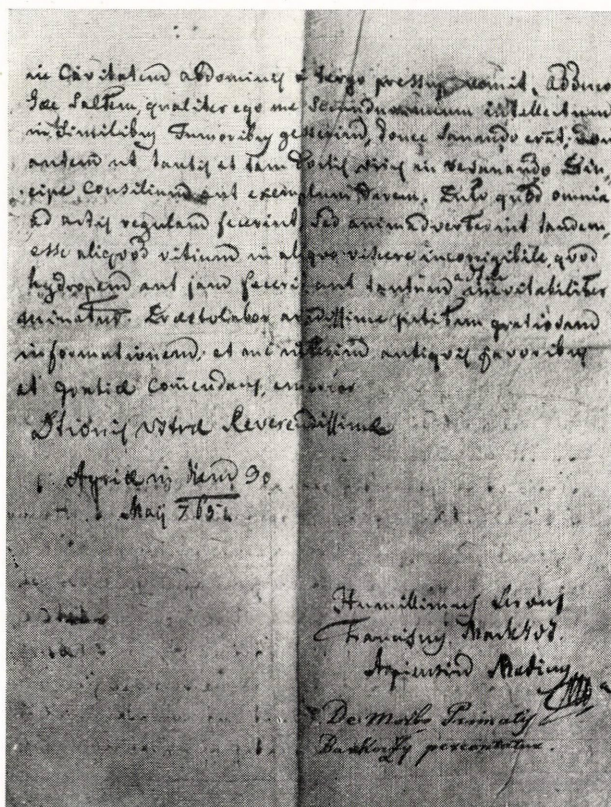 in Cavitatem abdominis a tergo pressus vomit. adduco
hoc saltem, qualiter ego me secundum meum intellectum
in similibus Tumoribus gesserim, donec sanando erat; non
autem ut tantis et tam doctis viris in resanando Prin-
cipe Consilium aut exemplum darem. Puto quod omnia
ad artis regulam fecerint, sed animadverterint tandem,
esse aliquod vitium in aliquo viscere incorrigibile, quod
hydropem aut jam fecerit aut tantum inevitabiliter
minatur. Praestolabor avidissime petitam gratiosam
informationem, et me interim antiquis favoribus
et gratiae comendans, emorior
Dtionis vestrae Reverendissimae
Agriae in diem 30
Maij
Humillimus servus
Franciscus Markhot
Medicus
De Morbo Primatis
Barkotzy percontatur.